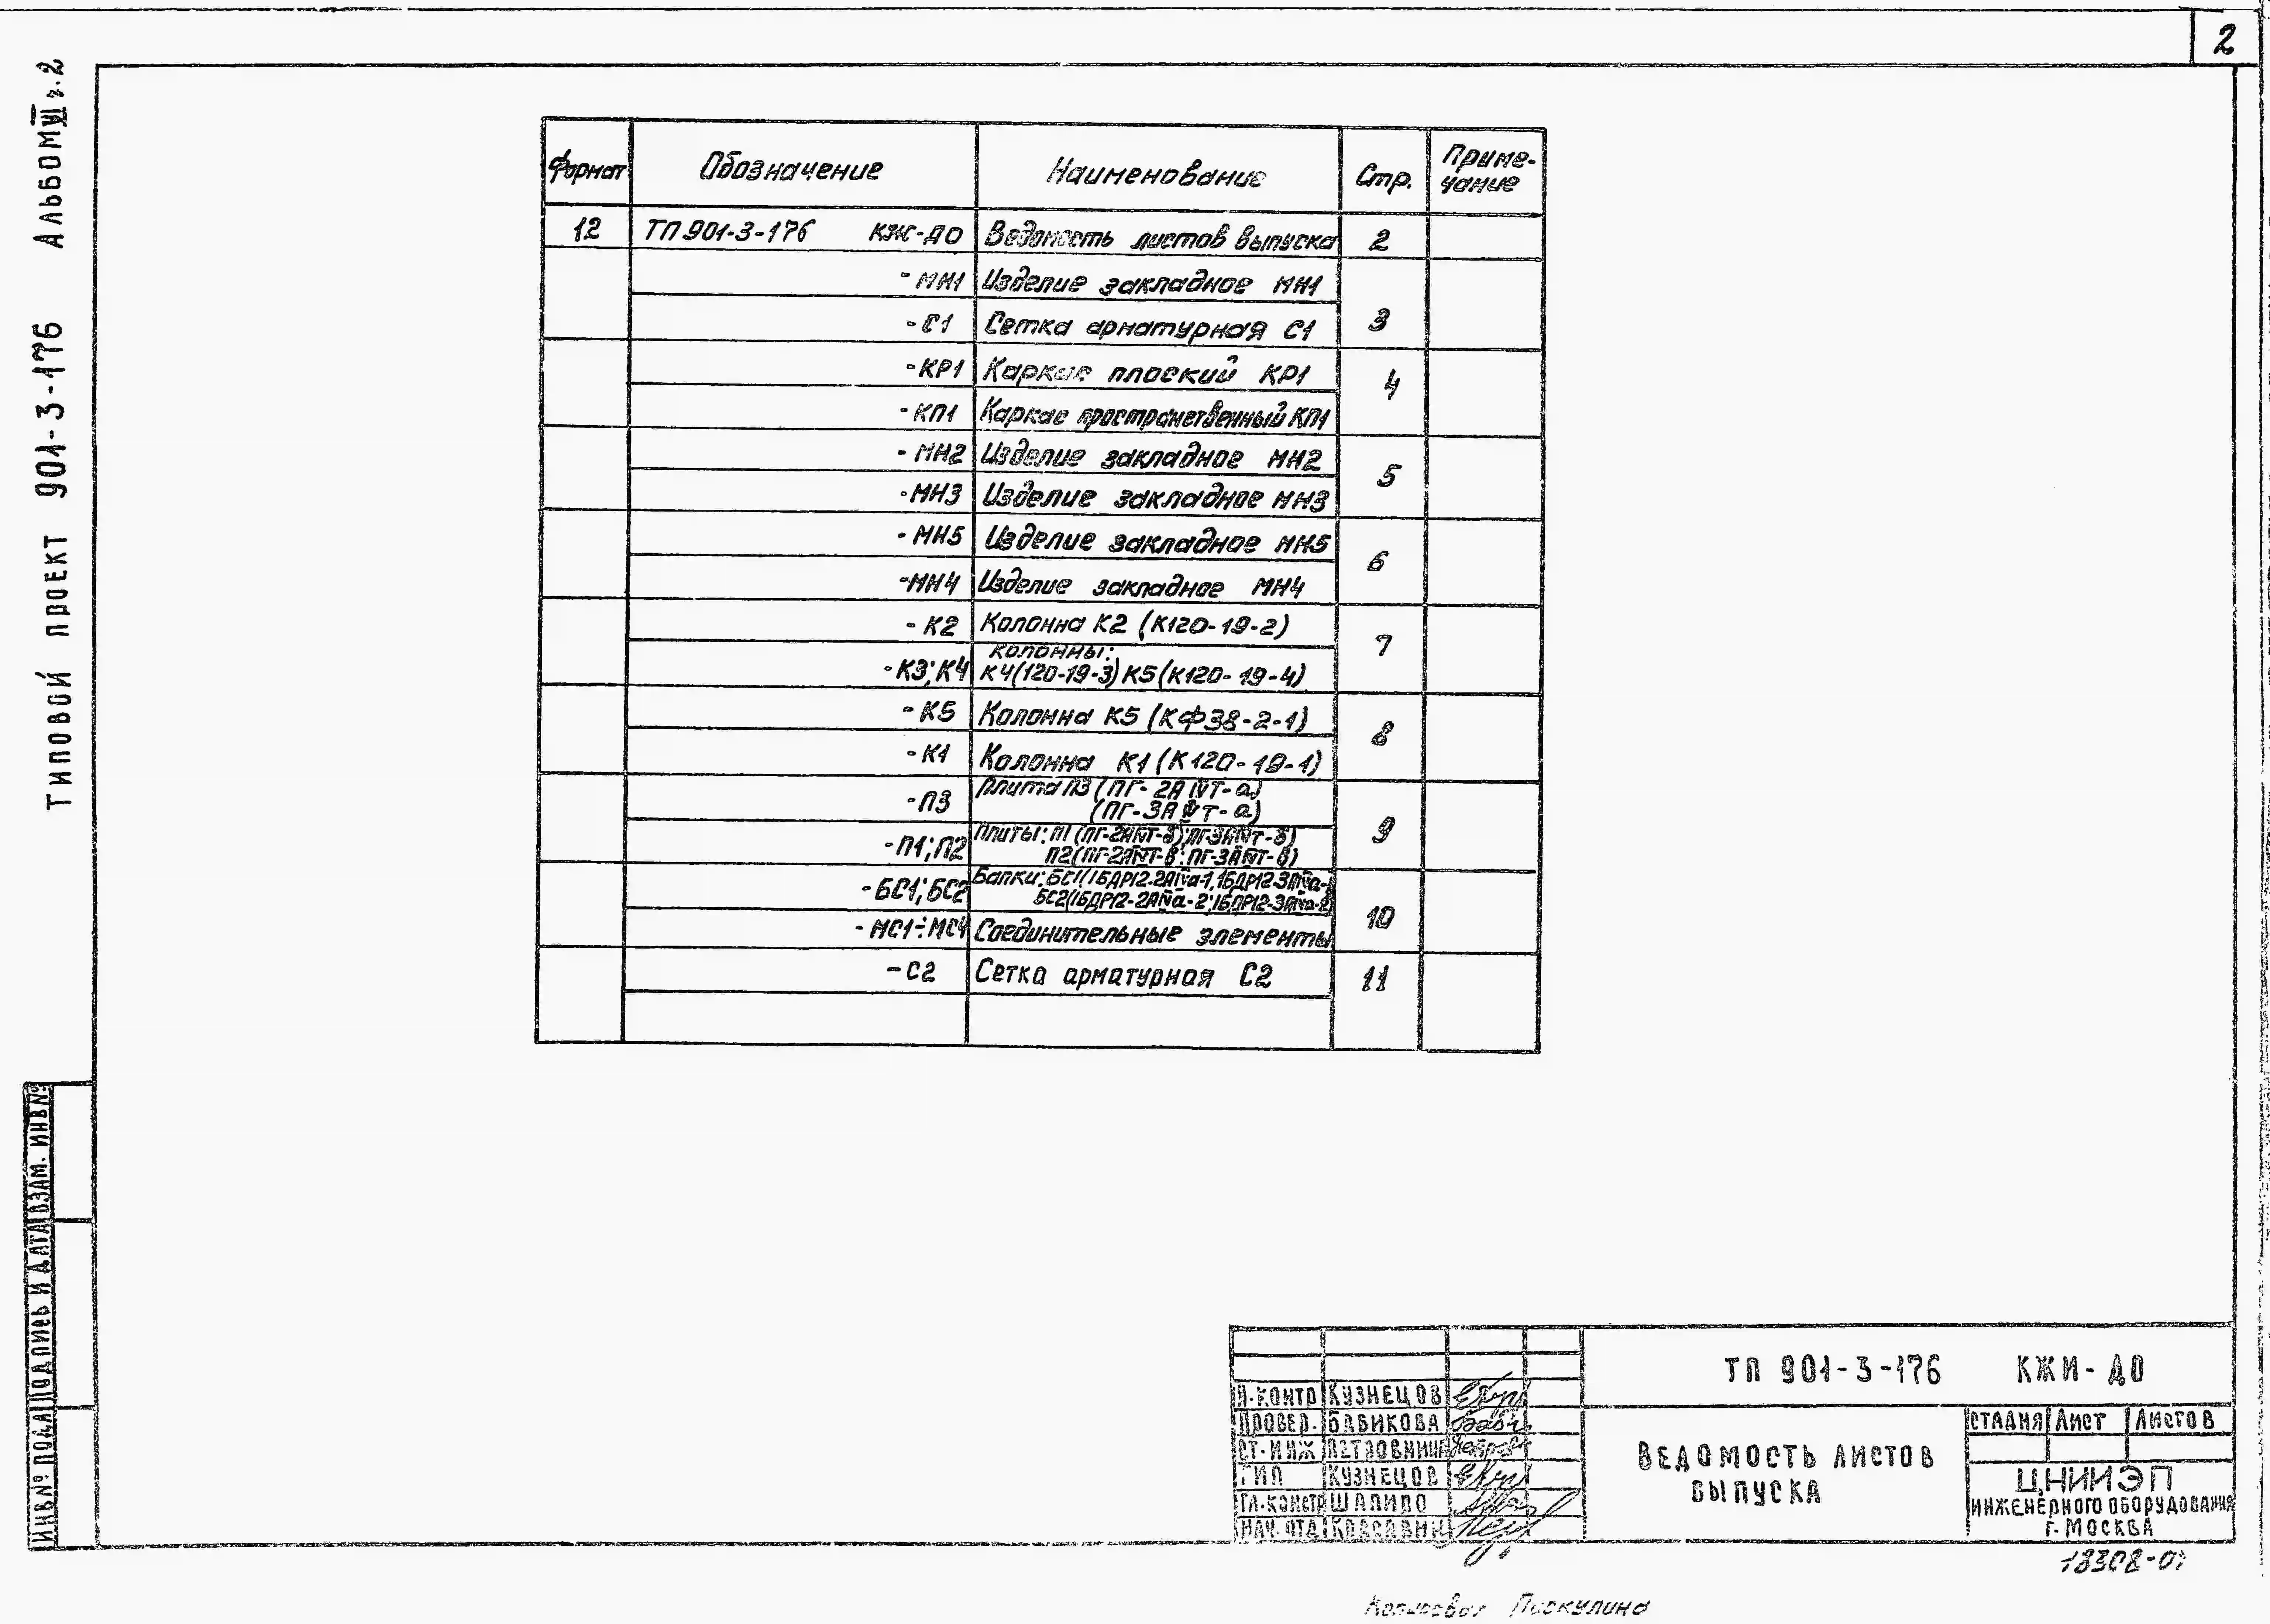 2
Альбом VI ч.2
Типовой проект 901-3-176
Формат Обозначение Наименование Стр. Приме-
чание
12 ТП 901-3-176 КЖИ-ДО Ведомость листов выпуска 2
-МН1 Изделие закладное МН1
-С1 Сетка арматурная С1 3
-КР1 Каркас плоский КР1 4
-КП1 Каркас пространственный КП1
-МН2 Изделие закладное МН2 5
-МН3 Изделие закладное МН3
-МН5 Изделие закладное МН5 6
-МН4 Изделие закладное МН4
-К2 Колонна К2 (К120-19-2) 7
Колонны:
-К3; К4 К4(120-19-3) К5(К120-19-4)
-К5 Колонна К5 (КФ38-2-1) 8
-К1 Колонна К1 (К120-19-1)
-П3 Плита П3 (ПГ-2АIVТ-а)
(ПГ-3АIVТ-а)
9
Плиты: П1 (ПГ-2АIVТ-б); ПГ-3АIVТ-б)
-П1; П2 П2(ПГ-2АIVТ-в; ПГ-3АIVТ-в)
-БС1; БС2 Балки: БС1(1БДР12-2АIVа-1, 1БДР12-3АIVа-1
БС2(1БДР12-2АIVа-2; 1БДР12-3АIVа-2)
10
-МС1÷МС4 Соединительные элементы
-С2 Сетка арматурная С2 11
Инв№ подл Подпись и дата Взам. инв№
ТП 901-3-176 КЖИ-ДО
Н.контр Кузнецов
Провер. Бабикова
Ст.инж
ГИП Кузнецов
Гл.констр Шапиро
Нач.отд Красавин
Ведомость листов
выпуска
Стадия Лист Листов
ЦНИИЭП
инженерного оборудования
г. Москва
18308-07
Копировал Пискулина